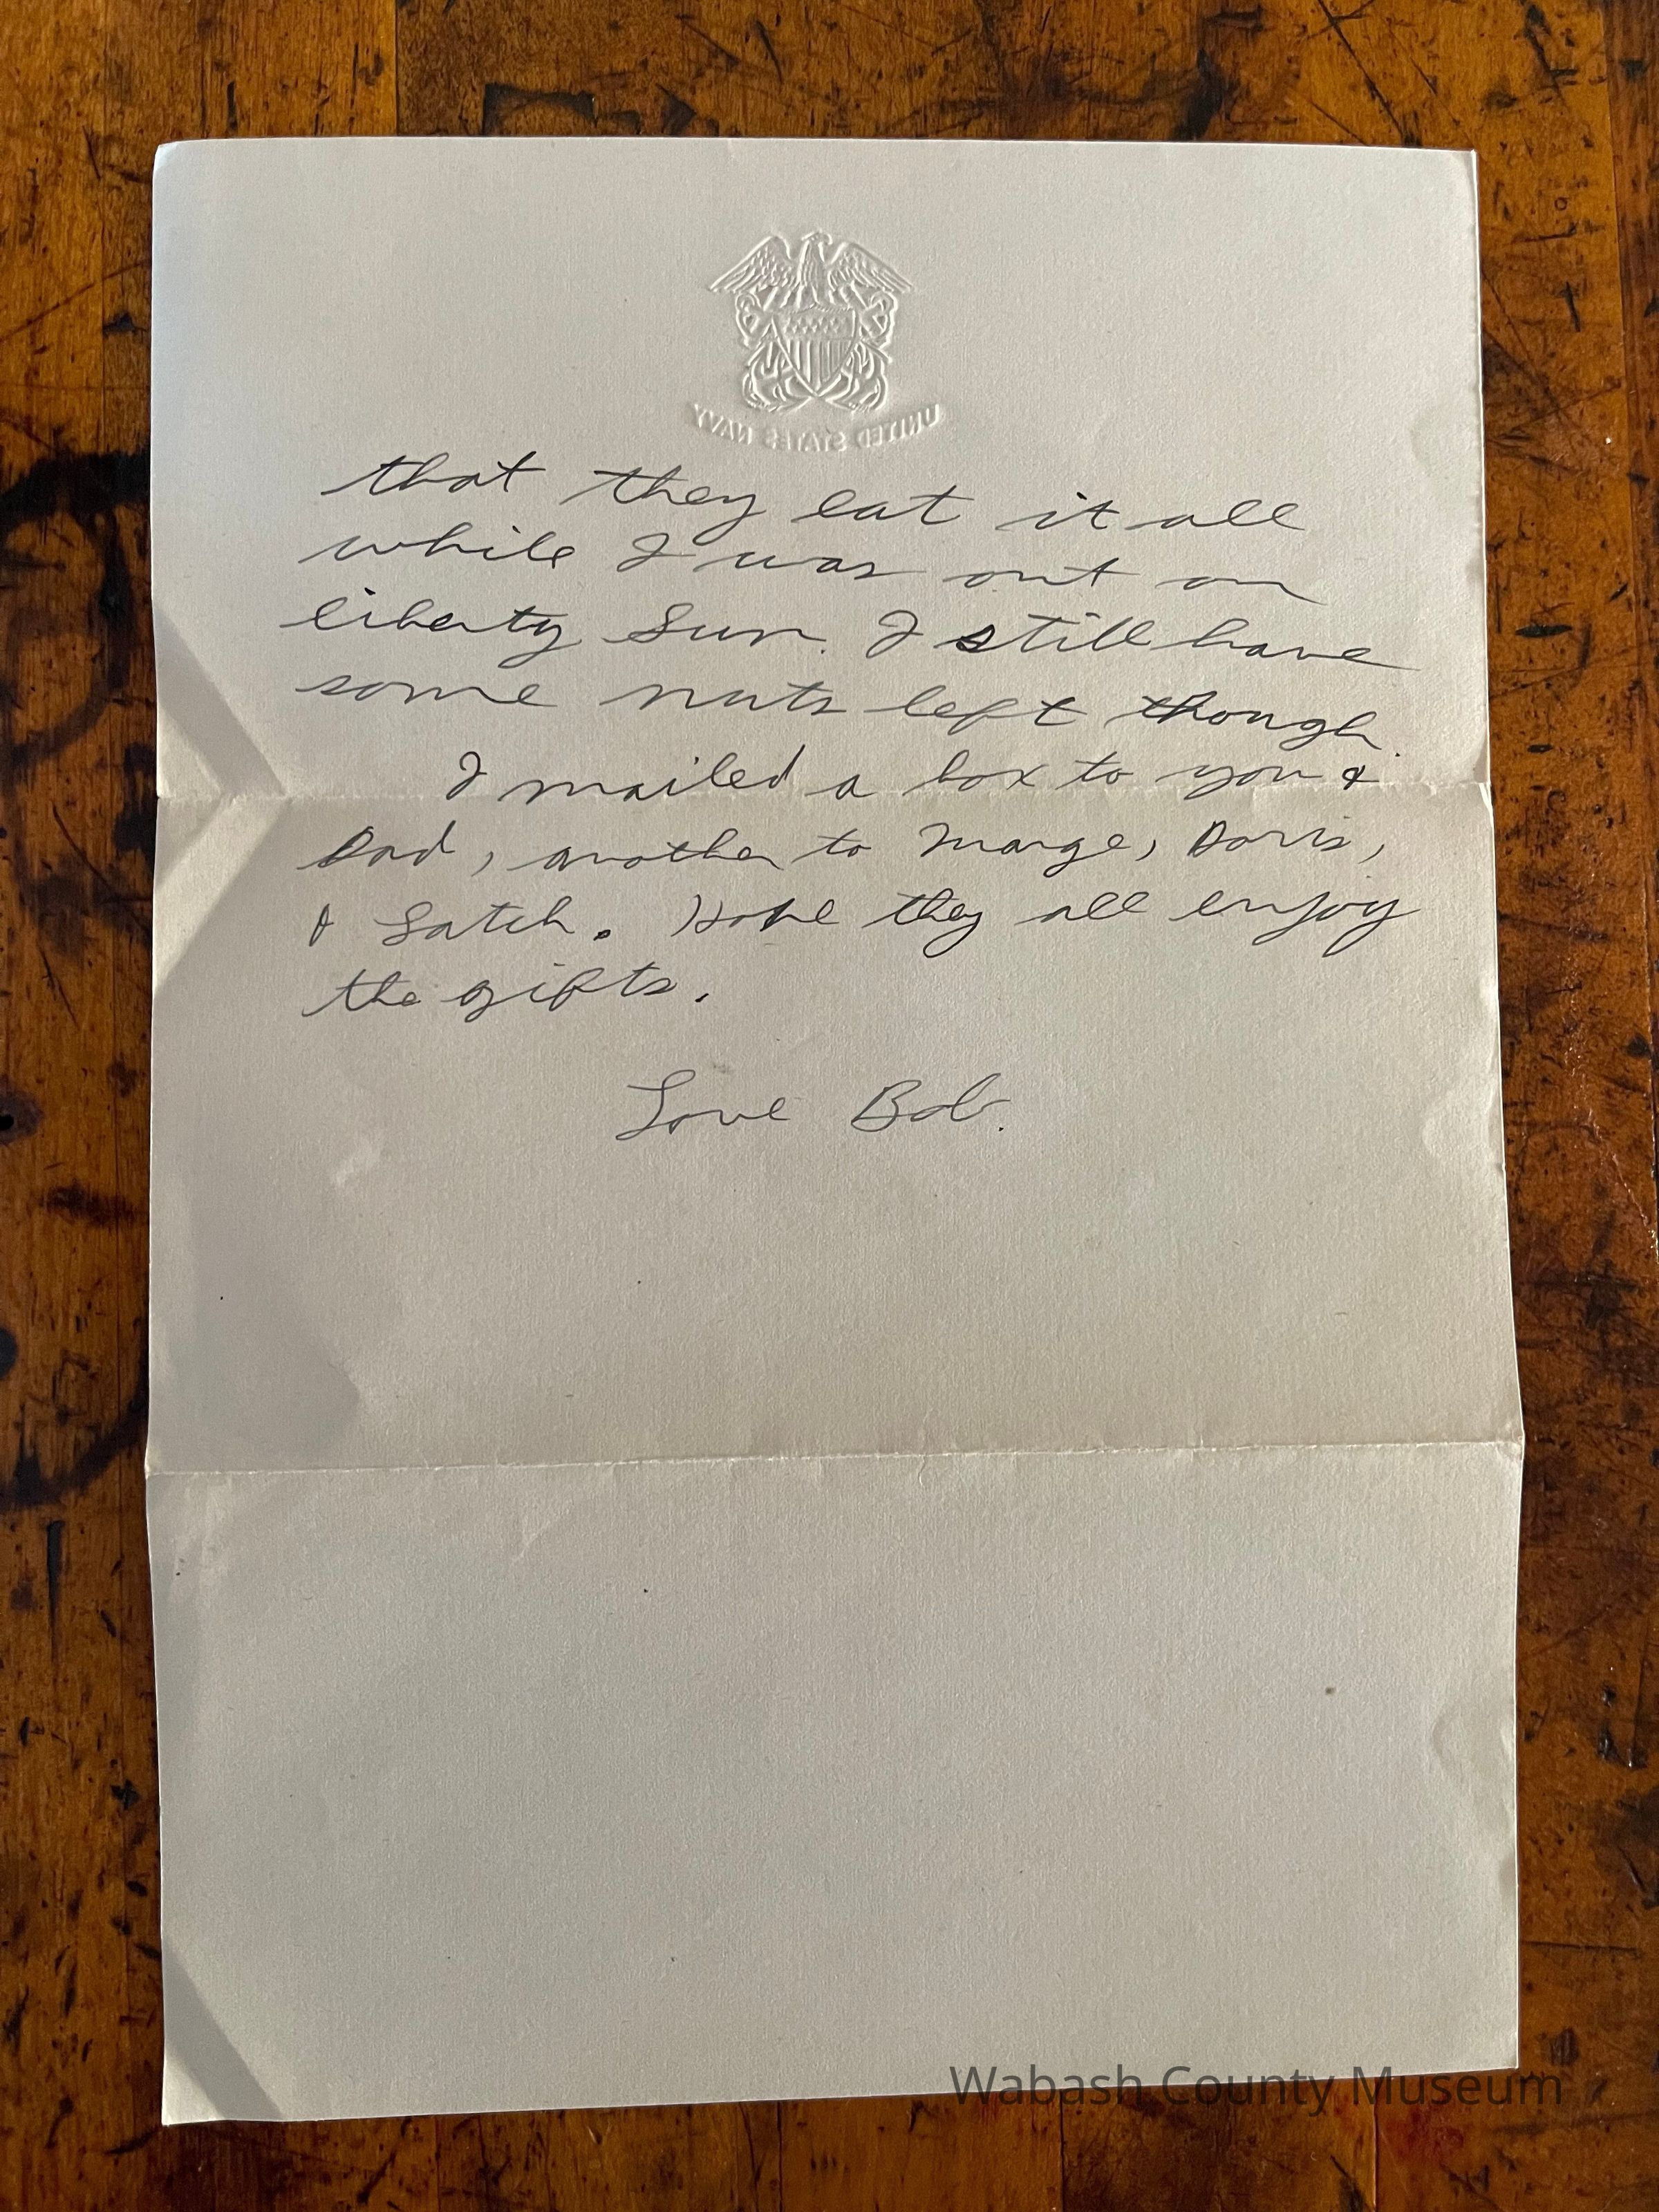 UNITED STATES NAVY
that they eat it all
while I was out on
liberty Sun. I still have
some nuts left though.
I mailed a box to you &
Dad, another to Marge, Doris,
& Satch. Hope they all enjoy
the gifts.
Love Bob.
Wabash County Museum